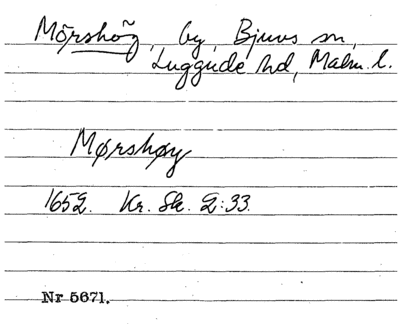 Mörshög, by, Bjuvs sn,
Luggude hd, Malm. l.
Mørshøy
1652. Kr. Sk. 2:33.
Nr 5671.